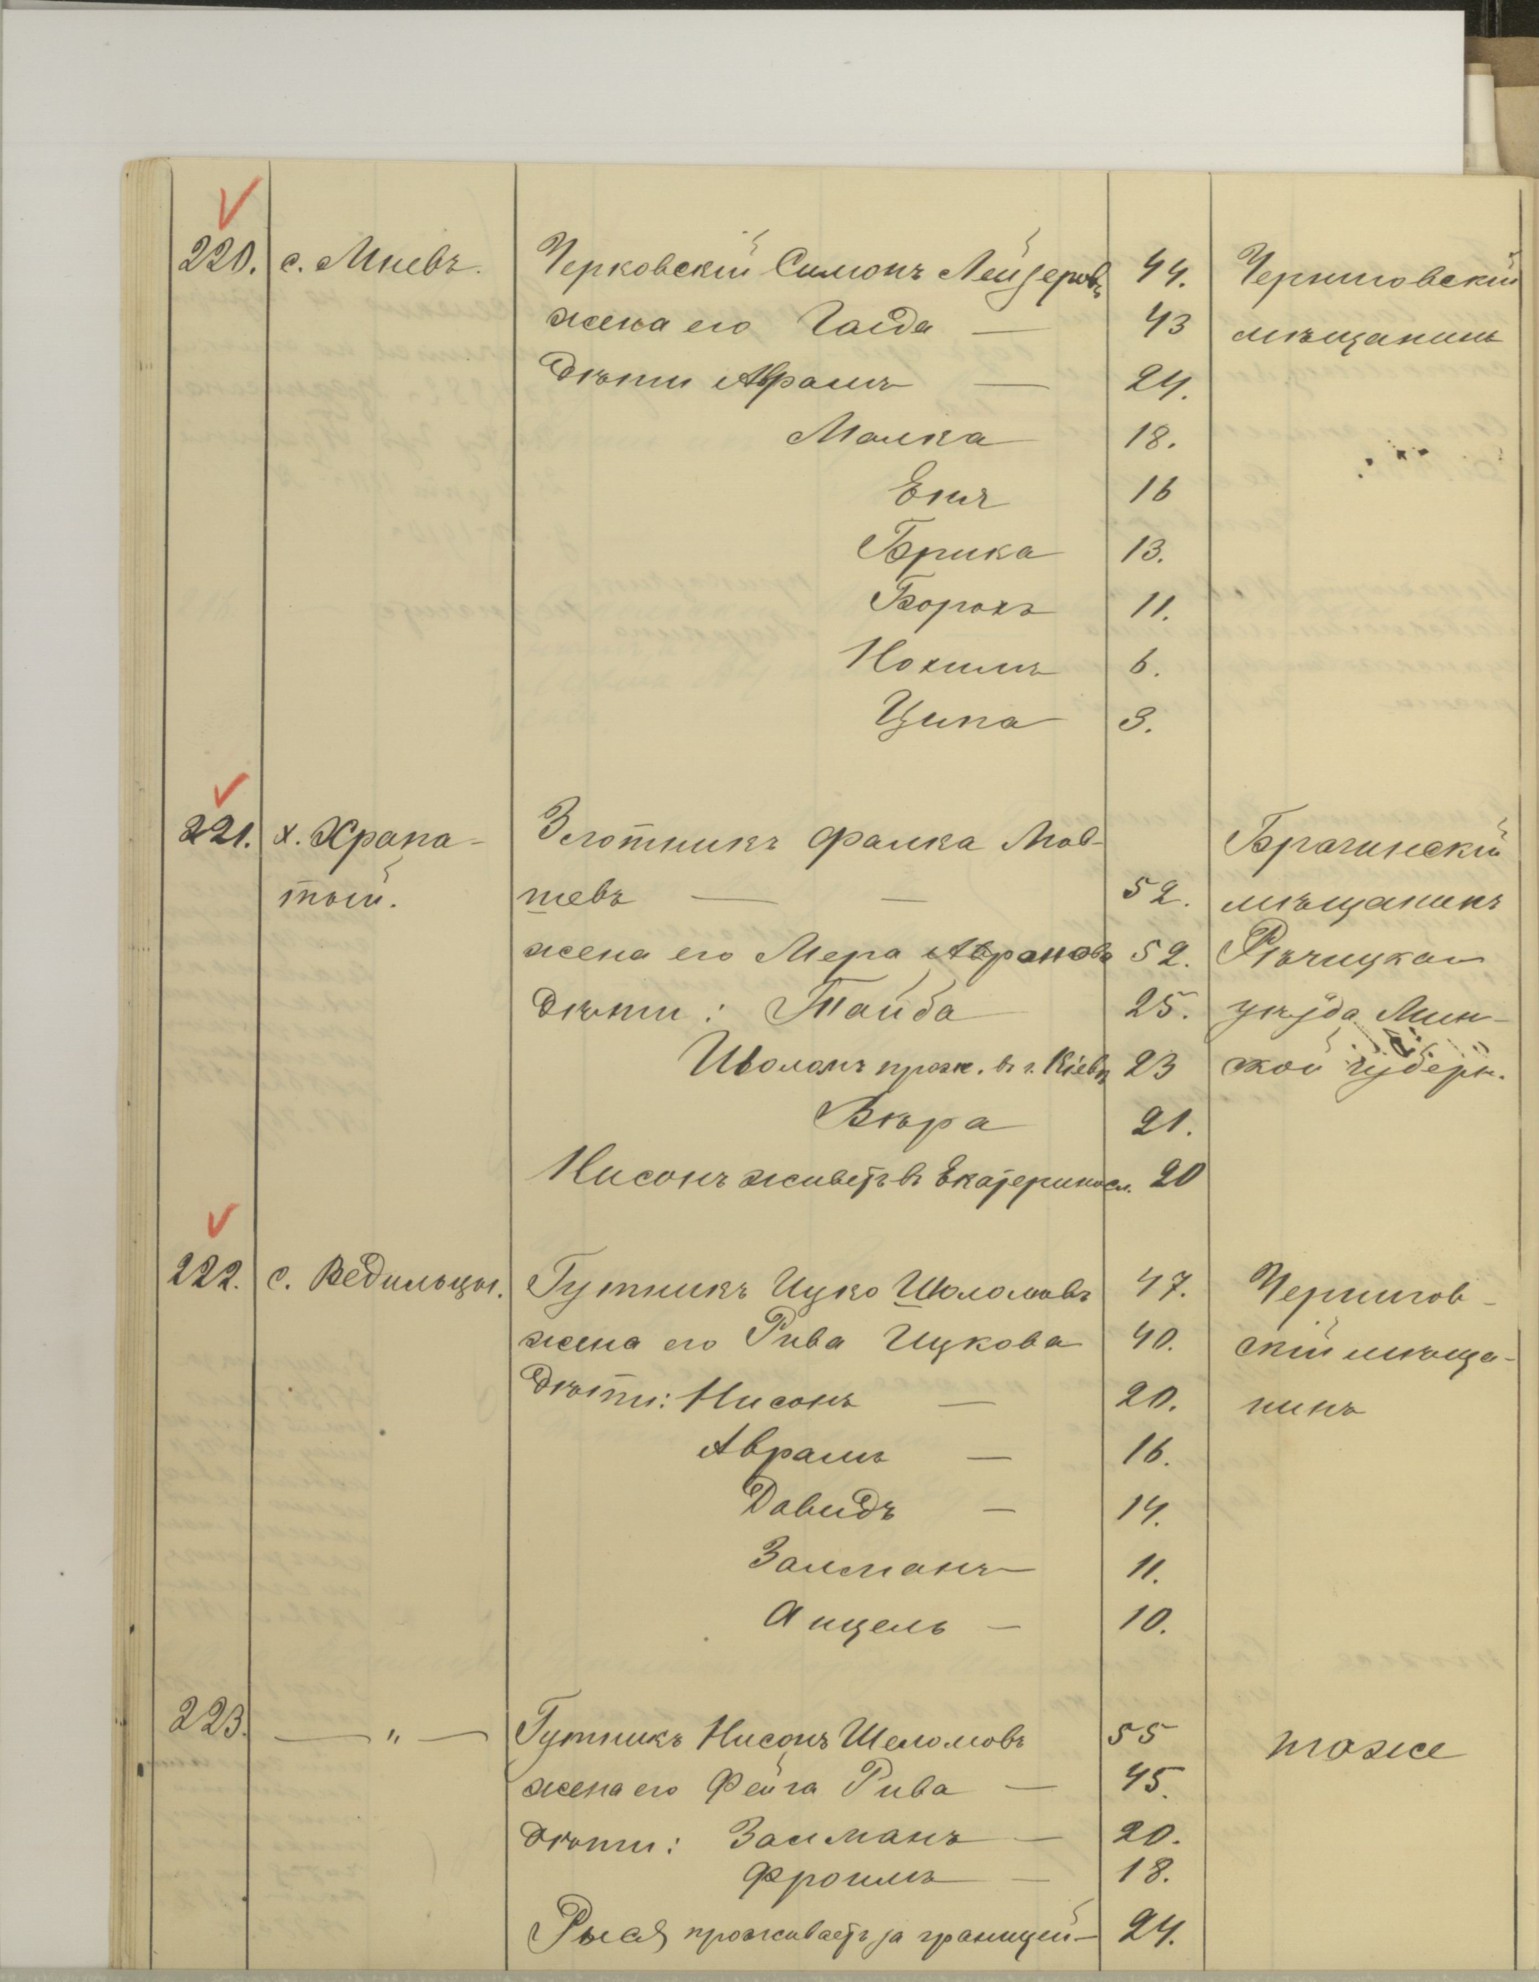 220. с. Мневъ. Черковскій Симонъ Лейзеровъ 44. Черниговскій
жена его Гасда — 43 мѣщанинъ
Дѣти Абрамъ — 24.
Малка 18.
Енч 16
Брика 13.
Борохъ 11.
Нохимъ 6.
Ципа 3.
221. х. Храпа- Злотникъ Фалка Мов- Брагинскій
тый. шевъ — — 52. мѣщанинъ
жена его Мера Абрамова 52. Рѣчицкаго
дѣти: Тайба 25. уѣзда Мин-
Шоломъ прож. въ г. Кіевѣ 23 ской губерн.
Вѣра 21.
Нисонъ живетъ въ Екатериносл. 20
222. с. Ведильцы. Гутникъ Ицко Шоломовъ 47. Чернигов-
жена его Рива Ицкова 40. скій мѣща-
Дѣти: Нисонъ — 20. нинъ
Абрамъ — 16.
Давидъ — 14.
Залманъ — 11.
Анцель — 10.
223. — " — Гутникъ Нисонъ Шеломовъ 55 тоже
жена его Фейга Рива — 45.
дѣти: Залманъ — 20.
Фроимъ — 18.
Рыся проживаетъ за границей — 24.